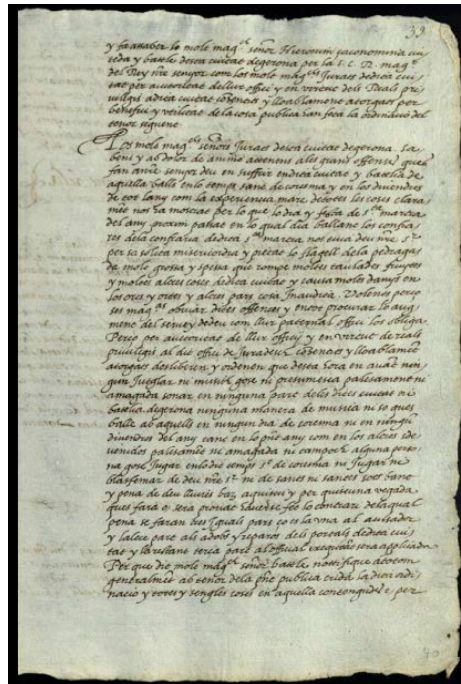 39
y fa assaber lo molt magch señor Hieronim saconomina ciu
tedà y batlle desta ciutat de gerona per la S. C. R. magt
del Rey nre senyor com los molt magchs Jurats de dita ciu
tat per authoritat de llur offici y en virtut dels Reals pri
vilegis a dita ciutat concessos y lloablament atorgats per
benefici y utilitat de la cosa publica han feta la ordinatio del
tenor seguent
Los molt magchs señors Jurats desta ciutat de gerona. sa
bent y ab dolor de animo attenent als grans offenses que
fan a nre senyor deu en suffrir en dita ciutat y batllia de
aquella balls en lo temps sant de coresma y en los divendres
de tot lany com la experiencia mare de totes les coses clara
mēt nos ha mostrat per lo que lo dia y festa de sta martria
del any proxim passat en lo qual dia ballant los confra
res de la confraria de dita sta martria nos envia deu nre sr
per sa solita misericordia y pietat lo flagell de la pedragada
de molt grossa y spessa que rompe moltes taulades finestres
y moltes altres coses de dita ciutat y causa molts danys en
los orts y ortes y altres parts cosa inaudita. Volent perço
ses magchs obviar dites offenses y encara procurar lo aug
ment del servey de deu com llur paternal offici los obliga
Perço per authoritat de llur offici y en virtut de reals
privilegis al dit offici de Juraderia concessos y lloablamēt
atorgats desliberen y ordenen que desta hora en avāt nen
gun Juglar ni musich gose ni presumesca palesament ni
amagada sonar en ninguna part de la dita ciutat ni
batllia de gerona ninguna manera de musica ni so ques
balle ab aquells en ningun dia de corema ni en ningūs
divendres del any tant en lo pñt any com en los altres ade
venidors palesamēt ni amagada ni tampoch alguna perso
na gose Jugar en lo dit temps st de coresma ni Jugar ni
blasfemar de deu nre sr ni de sants ni santes sots bant
y pena de deu lliures bar. aquirits y per quescuna vegada
ques farà o serà provat haverse fet lo contrari de la qual
pena se faran tres yguals parts ço es la una al acusador
y laltre part als adobs y reparos dels portals de dita ciu
tat y la restant tercia part al official exequtant serà applicada
Per que dit molt magch señor batlle notifique a tothom
generalmēt ab tenor de la pñt publica crida la dita ordi
natio y totes y sengles coses en aquella contengudes, per